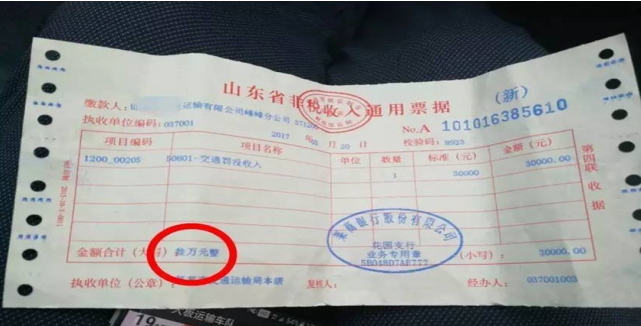 山东省非税收入通用票据 (新)
缴款人: 运输有限公司峰峰分公司
No.A 101016385610
执收单位编码: 037001 2017 年 月 20 日 校验码:
项目编码 项目名称 单位 数量 标准(元) 金额(元)
1200_00205 50601-交通罚没收入 1 30000 30000.00
第四联 收据
莱商银行股份有限公司
花园支行
业务专用章
金额合计(大写) 叁万元整 (小写): 30000.00
执收单位(公章): 交通运输局本级 复核人: 经办人: 037001003
大板运输车队